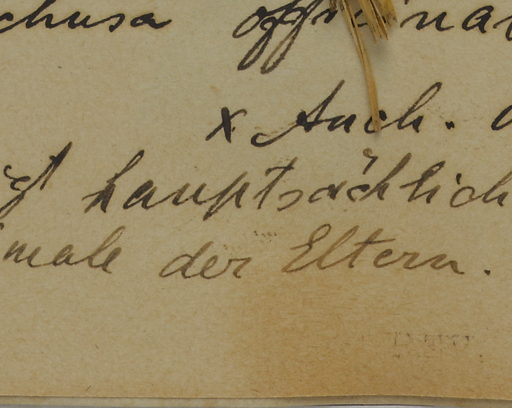 chusa offi inal
x Anch.
gt hauptsächlich
male der Eltern.